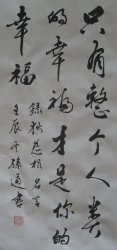 只有整个人类
的幸福才是你的
幸福
录狄慈根名言
壬辰年孙通书